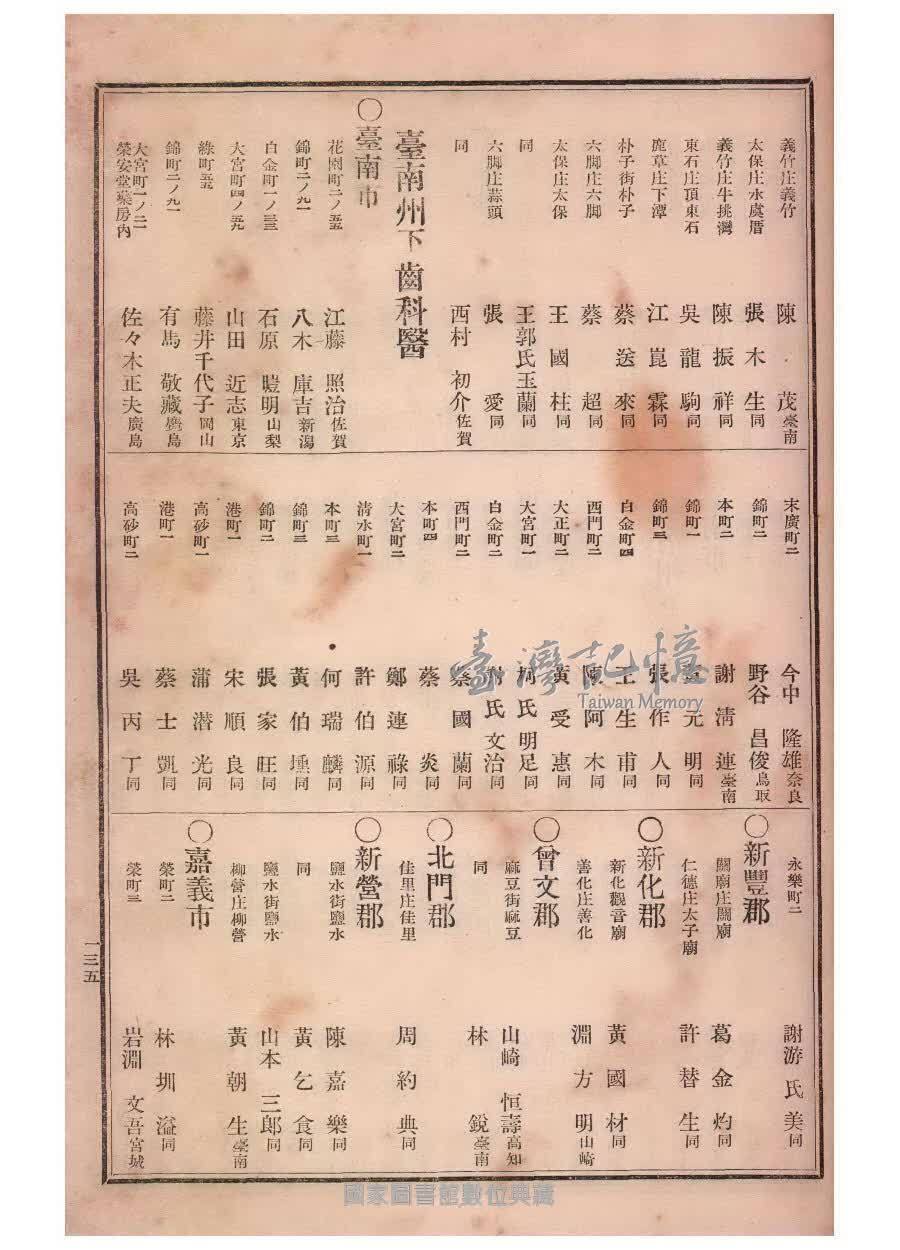 義竹庄義竹 陳茂 臺南
太保庄水虞厝 張木生 同
義竹庄牛挑灣 陳振祥 同
東石庄頂東石 吳龍駒 同
鹿草庄下潭 江崑霖 同
朴子街朴子 蔡送來 同
六脚庄六脚 蔡超 同
太保庄太保 王國柱 同
同 王郭氏玉蘭 同
六脚庄蒜頭 張愛 同
同 西村初介 佐賀
臺南州下齒科醫
○臺南市
花園町二ノ五五 江藤照治 佐賀
錦町二ノ九一 八木庫吉 新潟
白金町一ノ三三 石原暟明 山梨
大宮町四ノ五九 山田近志 東京
綠町五五 藤井千代子 岡山
錦町二ノ九一 有馬敬藏 廣島
大宮町一ノ二一榮安堂藥房內 佐々木正夫 廣島
末廣町二 今中隆雄 奈良
錦町二 野谷昌俊 鳥取
本町二 謝淸連 臺南
錦町一 元明 同
錦町三 張作人 同
白金町四 王生甫 同
西門町二 陳阿木 同
大正町二 黃受惠 同
大宮町一 柯氏明足 同
白金町二 謝氏文治 同
西門町二 蔡國蘭 同
本町四 蔡炎 同
大宮町二 鄭連祿 同
淸水町一 許伯源 同
本町三 何瑞麟 同
錦町三 黃伯壎 同
錦町二 張家旺 同
港町一 宋順良 同
高砂町一 蒲潛光 同
港町一 蔡士凱 同
高砂町二 吳丙丁 同
永樂町二 謝游氏美 同
○新豐郡
關廟庄關廟 葛金灼 同
仁德庄太子廟 許替生 同
○新化郡
新化觀音廟 黃國材 同
善化庄善化 淵方明 山崎
○曾文郡
麻豆街麻豆 山崎恒壽 高知
同 林銳 臺南
○北門郡
佳里庄佳里 周約典 同
○新營郡
鹽水街鹽水 陳嘉樂 同
同 黃乞食 同
鹽水街鹽水 山本三郞 同
柳營庄柳營 黃朝生 臺南
○嘉義市
榮町二 林圳溢 同
榮町三 岩淵文吾 宮城
一三五
臺灣記憶
Taiwan Memory
國家圖書館數位典藏